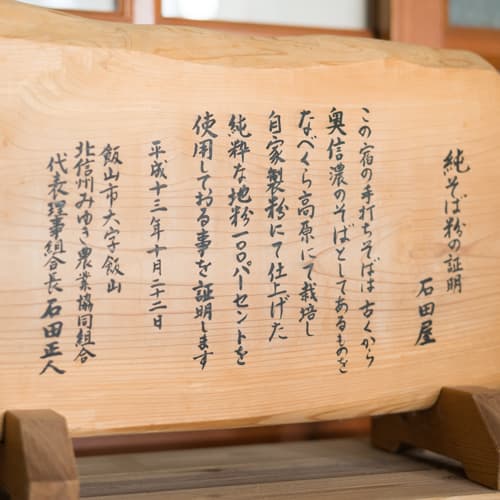 純そば粉の証明
石田屋
この宿の手打ちそばは古くから
奥信濃のそばとしてあるものを
なべくら高原にて栽培し
自家製粉にて仕上げた
純粋な地粉一〇〇パーセントを
使用しておる事を証明します
平成十三年十月二十二日
飯山市大字飯山
北信州みゆき農業協同組合
代表理事組合長 石田正人